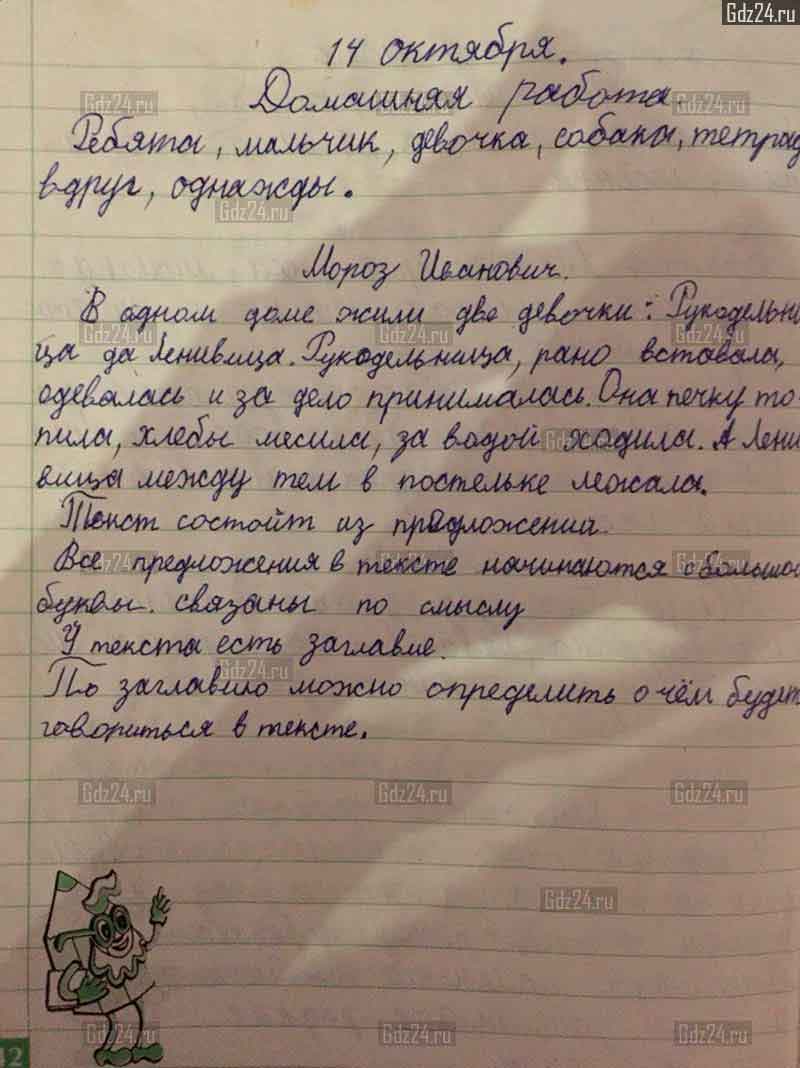 Gdz24.ru
14 октября.
Домашняя работа.
Ребята, мальчик, девочка, собака, тетрад
вдруг, однажды.
Мороз Иванович.
В одном доме жили две девочки: Рукодельни
ца да Ленивица. Рукодельница, рано вставала,
одевалась и за дело принималась. Она печку то-
пила, хлебы месила, за водой ходила. А Лени
вица между тем в постельке лежала.
Текст состойт из предложений.
Все предложения в тексте начинаются с большой
буквы. связаны по смыслу
У текста есть заглавие.
По заглавию можно определить о чём будет
говориться в тексте.
42